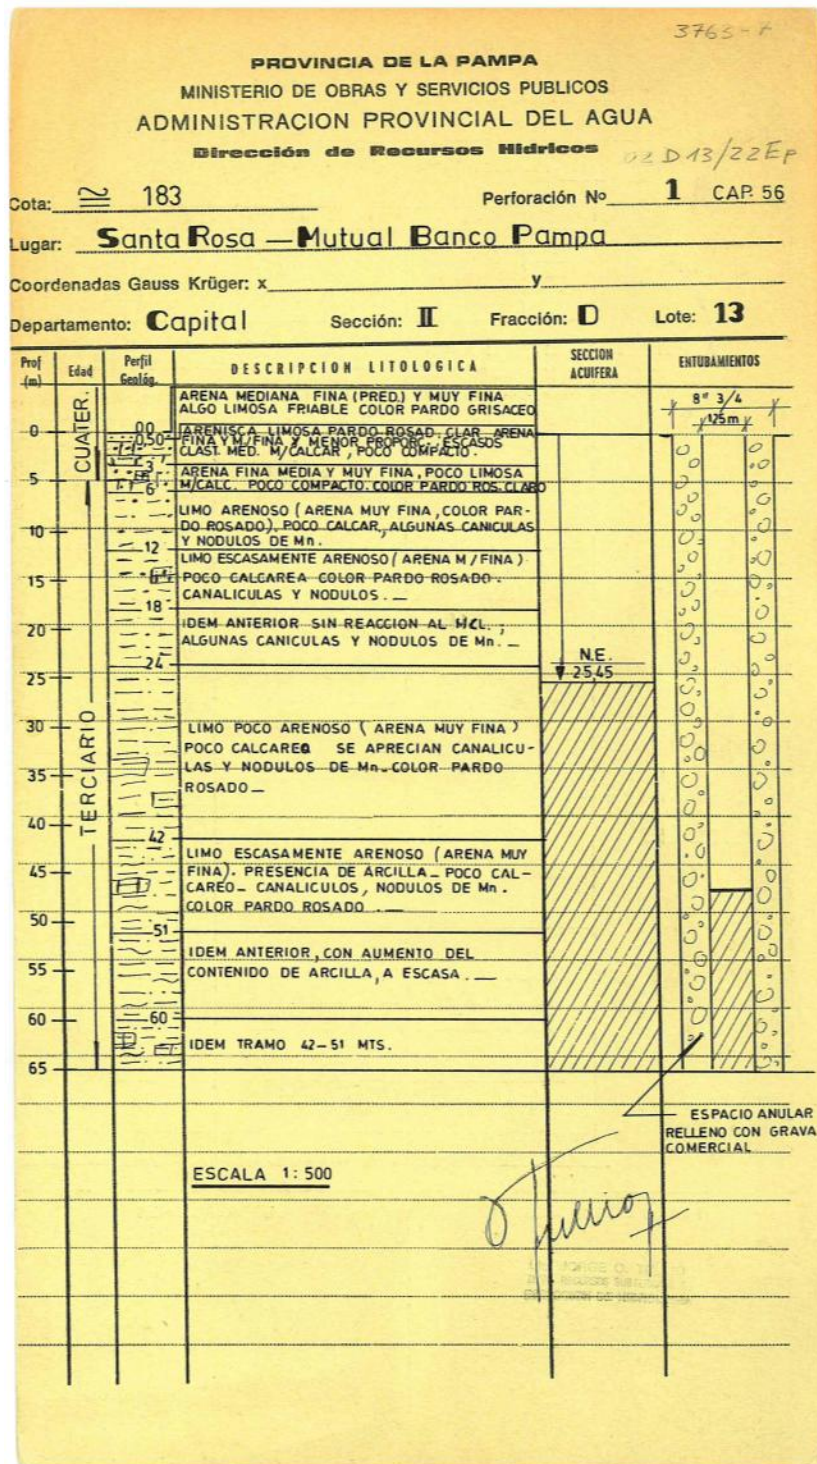 3763-7
PROVINCIA DE LA PAMPA
MINISTERIO DE OBRAS Y SERVICIOS PUBLICOS
ADMINISTRACION PROVINCIAL DEL AGUA
Dirección de Recursos Hidricos
02 D 13/22Ep
Cota: ≅ 183 Perforación Nº 1 CAP. 56
Lugar: Santa Rosa — Mutual Banco Pampa
Coordenadas Gauss Krüger: x y
Departamento: Capital Sección: II Fracción: D Lote: 13
Prof (m) Edad Perfil Geológ. DESCRIPCION LITOLOGICA SECCION ACUIFERA ENTUBAMIENTOS
CUATER.
TERCIARIO
ARENA MEDIANA FINA (PRED.) Y MUY FINA
ALGO LIMOSA FRIABLE COLOR PARDO GRISACEO
8" 3/4
125m
0
00
0,50
ARENISCA LIMOSA PARDO ROSAD. CLAR. ARENA
FINA Y M/FINA Y MENOR PROPORC. ESCASOS
CLAST. MED. M/CALCAR, POCO COMPACTO.
3
5
6
ARENA FINA MEDIA Y MUY FINA, POCO LIMOSA
M/CALC. POCO COMPACTO. COLOR PARDO ROS. CLARO
10
12
LIMO ARENOSO (ARENA MUY FINA, COLOR PAR-
DO ROSADO). POCO CALCAR, ALGUNAS CANICULAS
Y NODULOS DE Mn.
15
18
LIMO ESCASAMENTE ARENOSO (ARENA M/FINA)
POCO CALCAREA COLOR PARDO ROSADO.
CANALICULAS Y NODULOS. —
20
24
IDEM ANTERIOR SIN REACCION AL HCL.;
ALGUNAS CANICULAS Y NODULOS DE Mn. —
N.E.
25,45
25
30
35
40
42
LIMO POCO ARENOSO (ARENA MUY FINA)
POCO CALCAREO SE APRECIAN CANALICU-
LAS Y NODULOS DE Mn. COLOR PARDO
ROSADO —
45
50
51
LIMO ESCASAMENTE ARENOSO (ARENA MUY
FINA). PRESENCIA DE ARCILLA — POCO CAL-
CAREO — CANALICULOS, NODULOS DE Mn.
COLOR PARDO ROSADO. —
55
60
60
IDEM ANTERIOR, CON AUMENTO DEL
CONTENIDO DE ARCILLA, A ESCASA. —
IDEM TRAMO 42-51 MTS.
65
ESPACIO ANULAR
RELLENO CON GRAVA
COMERCIAL
ESCALA 1:500